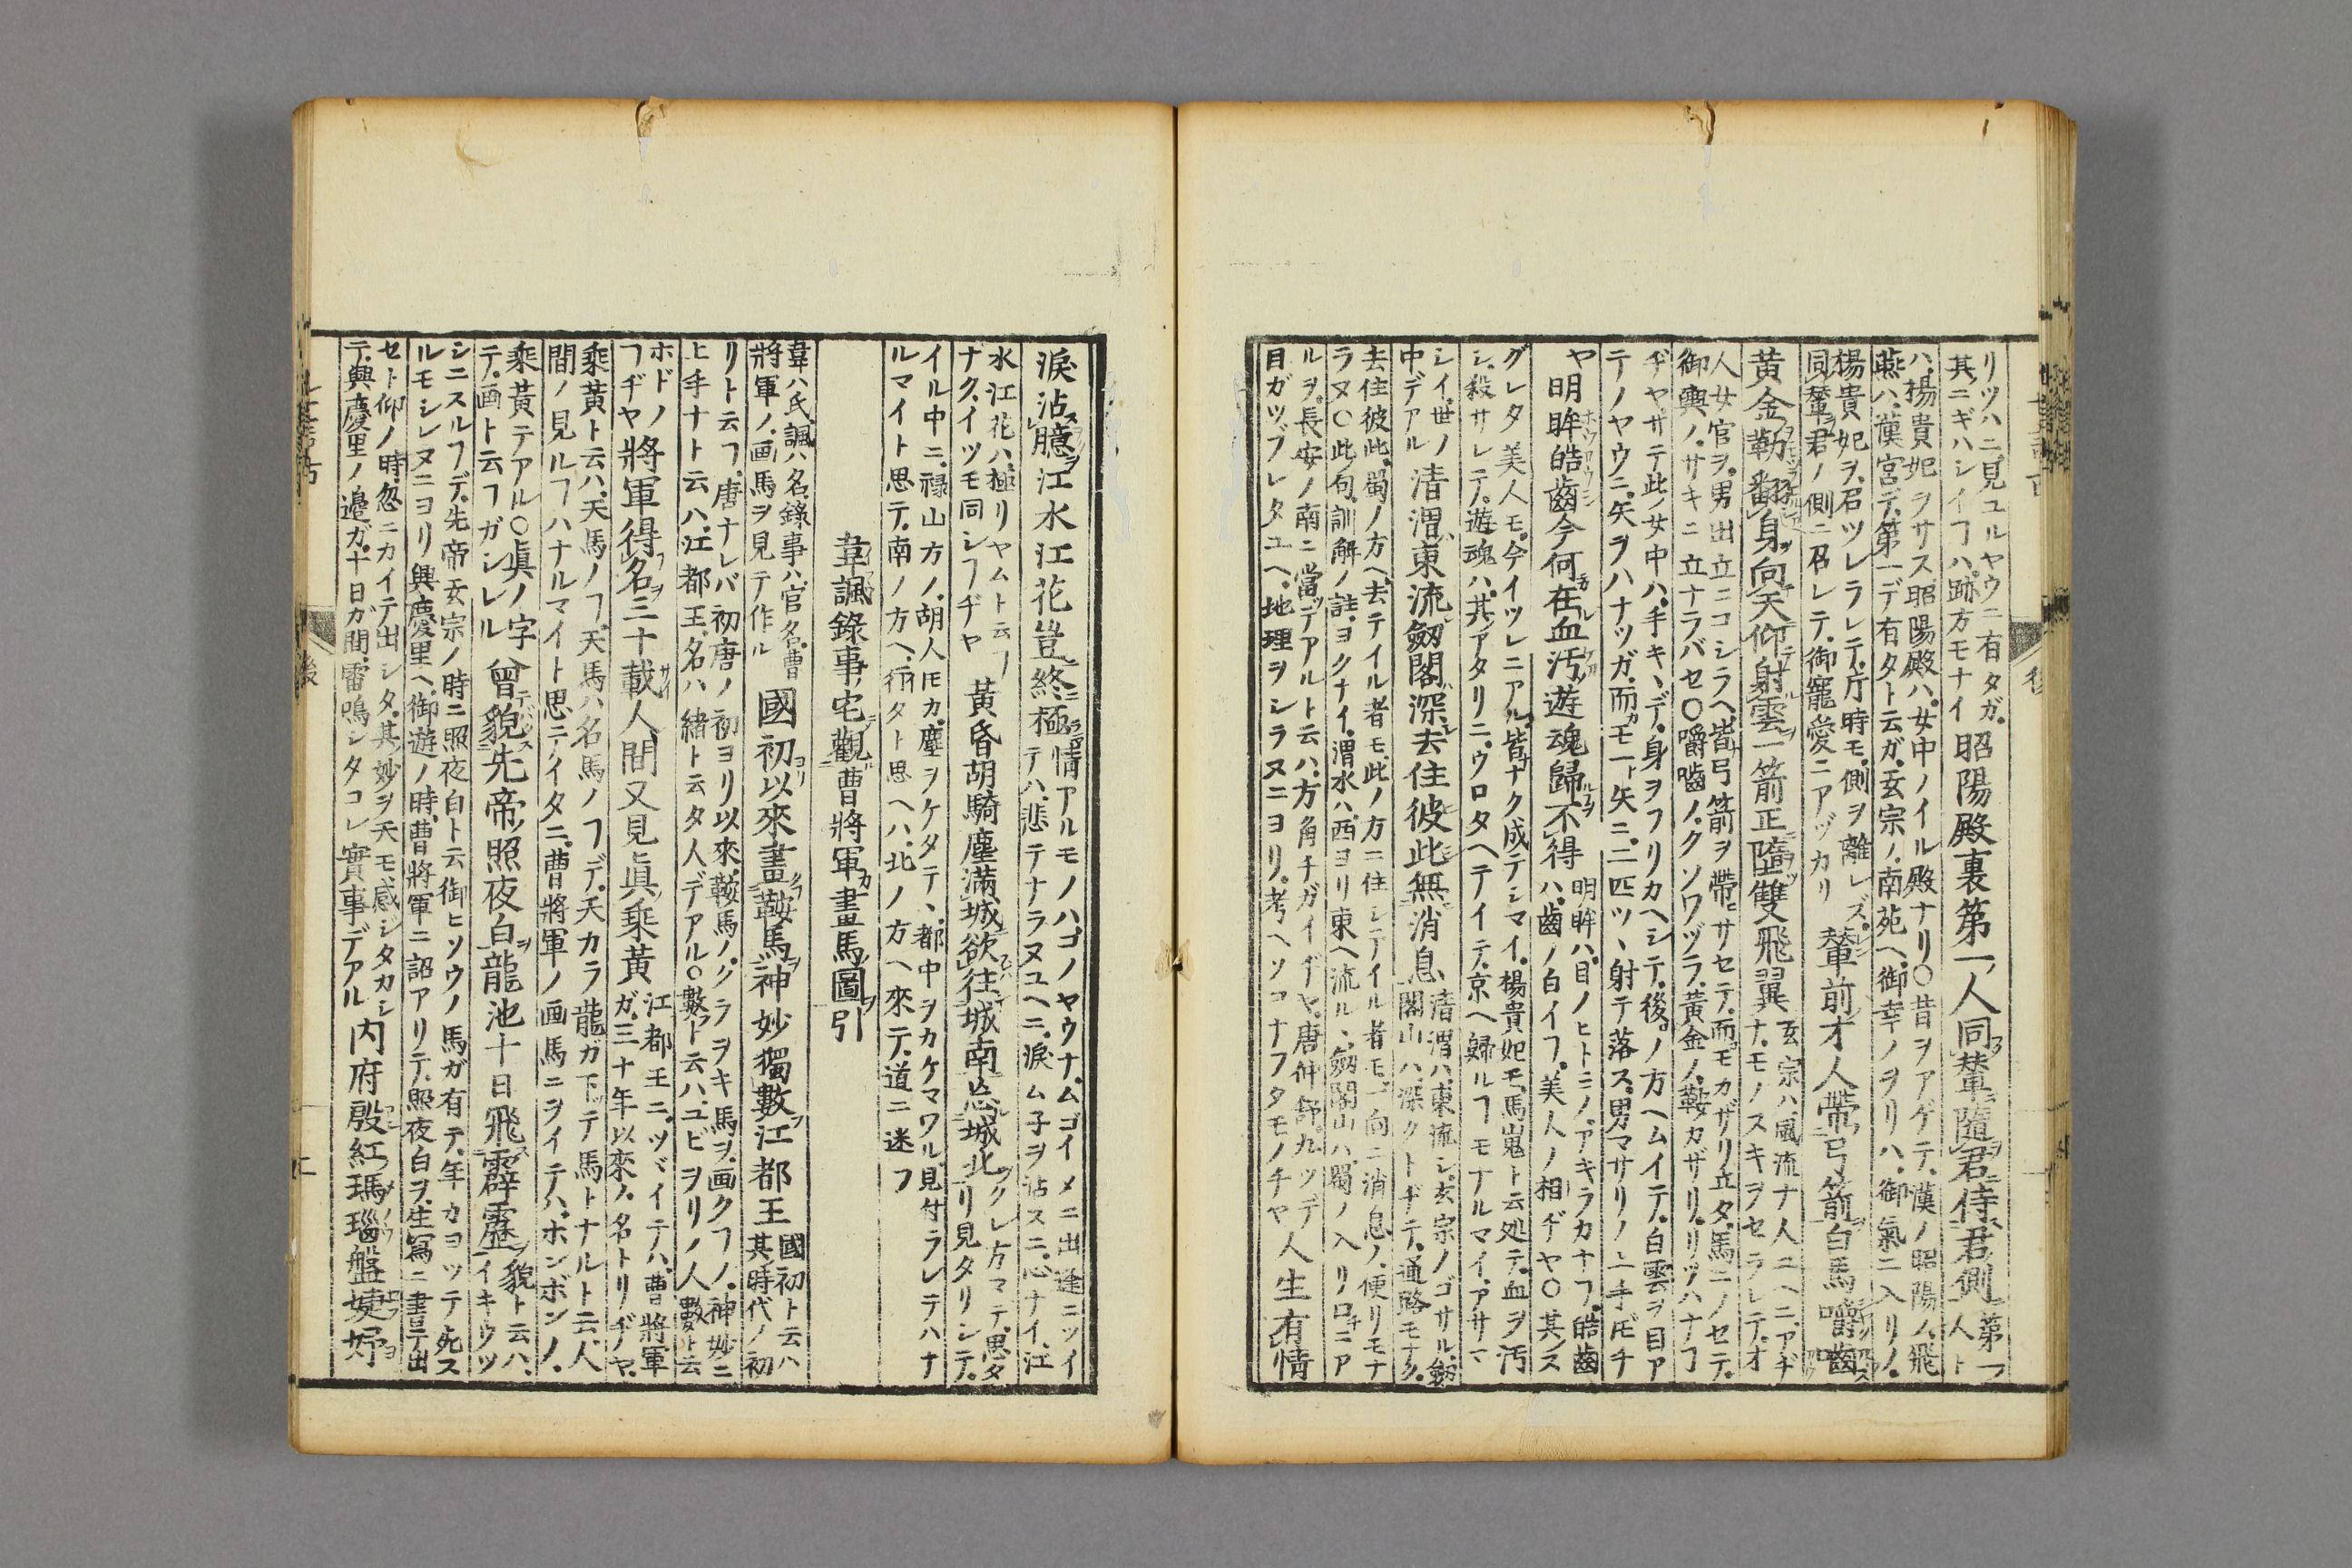 リツハニ見ユルヤウニ有タガ
其ニギハシイヿハ跡方モナイ
昭陽殿裏第一人同輦隨君侍君側
第一ノ人ト
ハ楊貴妃ヲサス昭陽殿ハ女中ノイル殿ナリ〇昔ヲアゲテ漢ノ昭陽ノ飛
燕ハ漢宮デ第一デ有タト云ガ玄宗ノ南苑ヘ御幸ノヲリハ御氣ニ入リノ
楊貴妃ヲ召ツレラレテ片時モ側ヲ離レズ
同輦君ノ側ニ召レテ御寵愛ニアヅカリ
輦前才人帶弓箭白馬嚼齧
黃金勒翻身向天仰射雲一箭正墮雙飛翼
玄宗ハ風流ナ人ユヘニアヂ
ナモノスキヲセラレテオ
人女官ヲ男出立ニコシラヘ皆弓箭ヲ帶サセテ而モカザリ立タ馬ニノセテ
御輿ノサキニ立ナラバセ〇嚼嚙ノクソワヅラ黃金ノ鞍カザリリツハナヿ
ヂヤサテ此ノ女中ハ手キヽデ身ヲフリカヘシテ後ノ方ヘムイテ白雲ヲ目ア
テノヤウニ矢ヲハナツガ而モ一ト矢ニ二匹ツヽ射テ落ス男マサリノ上手ヂ
ヤ
明眸皓齒今何在血汚遊魂歸不得
明眸ハ目ノヒトミノアキラカナヿ皓齒
ハ齒ノ白イヿ美人ノ相ヂヤ〇其ス
グレタ美人モ今イツレニアル皆ナク成テシマイ楊貴妃モ馬嵬ト云処テ血ヲ汚
シ殺サレテ遊魂ハ其アタリニウロタヘテイテ京ヘ歸ルヿモナルマイアサマ
シイ世ノ
中デアル
清渭東流劒閣深去住彼此無消息
清渭ハ東流シ玄宗ノゴサル劒
閣山ハ深クトヂテ通路モナク
去住彼此蜀ノ方ヘ去テイル者モ此ノ方ニ住シテイル者モ一向ニ消息ノ便リモナ
ラヌ〇此句訓解ノ註ヲクナイ渭水ハ西ヨリ東ヘ流ルヽ劒閣山ハ蜀ノ入リ口ニア
ルヲ長安ノ南ニ當デアルト云ハ方角チガイヂヤ唐仲舒九ツデ
目ガツブレタユヘ地理ヲシラヌニヨリ考ヘソコナフタモノヂヤ
人生有情
淚沾臆江水江花豈終極
情アルモノハゴノヤウナムゴイメニ出逢ニツイ
テハ悲テナラヌユヘニ淚ム子ヲ沾スニ心ナイ江
水江花ハ極リヤムト云ヿ
ナクイツモ同シヿヂヤ
黃昏胡騎塵滿城欲往城南忘城北
クレ方マテ思タ
リ見タリシテ
イル中ニ祿山方ノ胡人𪜈カ塵ヲケタテヽ都中ヲカケマワル見付ラレテハナ
ルマイト思テ南ノ方ヘ行タト思ヘハ北ノ方ヘ來テ道ニ迷フ
韋諷錄事宅觀曹將軍畫馬圖引
韋ハ氏諷ハ名錄事ハ官名曹
將軍ノ画馬ヲ見テ作ル
國初以來畫鞍馬神妙獨數江都王
國初ト云ハ
其時代ノ初
リト云フ唐ナレバ初唐ノ初ヨリ以來鞍馬ノクラヲキ馬ヲ画クフノ神妙ニ
ヒ手ナト云ハ江都王名ハ緖ト云タ人デアル〇數ト云ハユビヲリノ人數ト云
ホドノ
フヂヤ
將軍得名三十載人間又見眞乘黃
江都王ニツヾイテハ曹將軍
ガ三十年以來ノ名トリヂヤ
乘黃ト云ハ天馬ノヿ天馬ハ名馬ノヿデ天カラ龍ガ下テ馬トナルト云人
間ノ見ルヿハナルマイト思テイタニ曹將軍ノ画馬ニヲイテハホンボンノ
乘黃テアル〇眞ノ字
テ画ト云フガシレル
曾貌先帝照夜白龍池十日飛霹靂
貌ト云ハ
イキウツ
シニスルヿデ先帝玄宗ノ時ニ照夜白ト云御ヒソウノ馬ガ有テ年カヨツテ死ス
ルモシレヌニヨリ興慶里ヘ御遊ノ時曹將軍ニ詔アリテ照夜白ヲ生寫ニ書テ出
セト仰ノ時忽ニカイテ出シタ其妙ヲ天モ感ジタカシ
テ興慶里ノ邉ガ十日ガ間雷鳴シタコレ實事デアル
內府殷紅瑪瑙盤婕妤